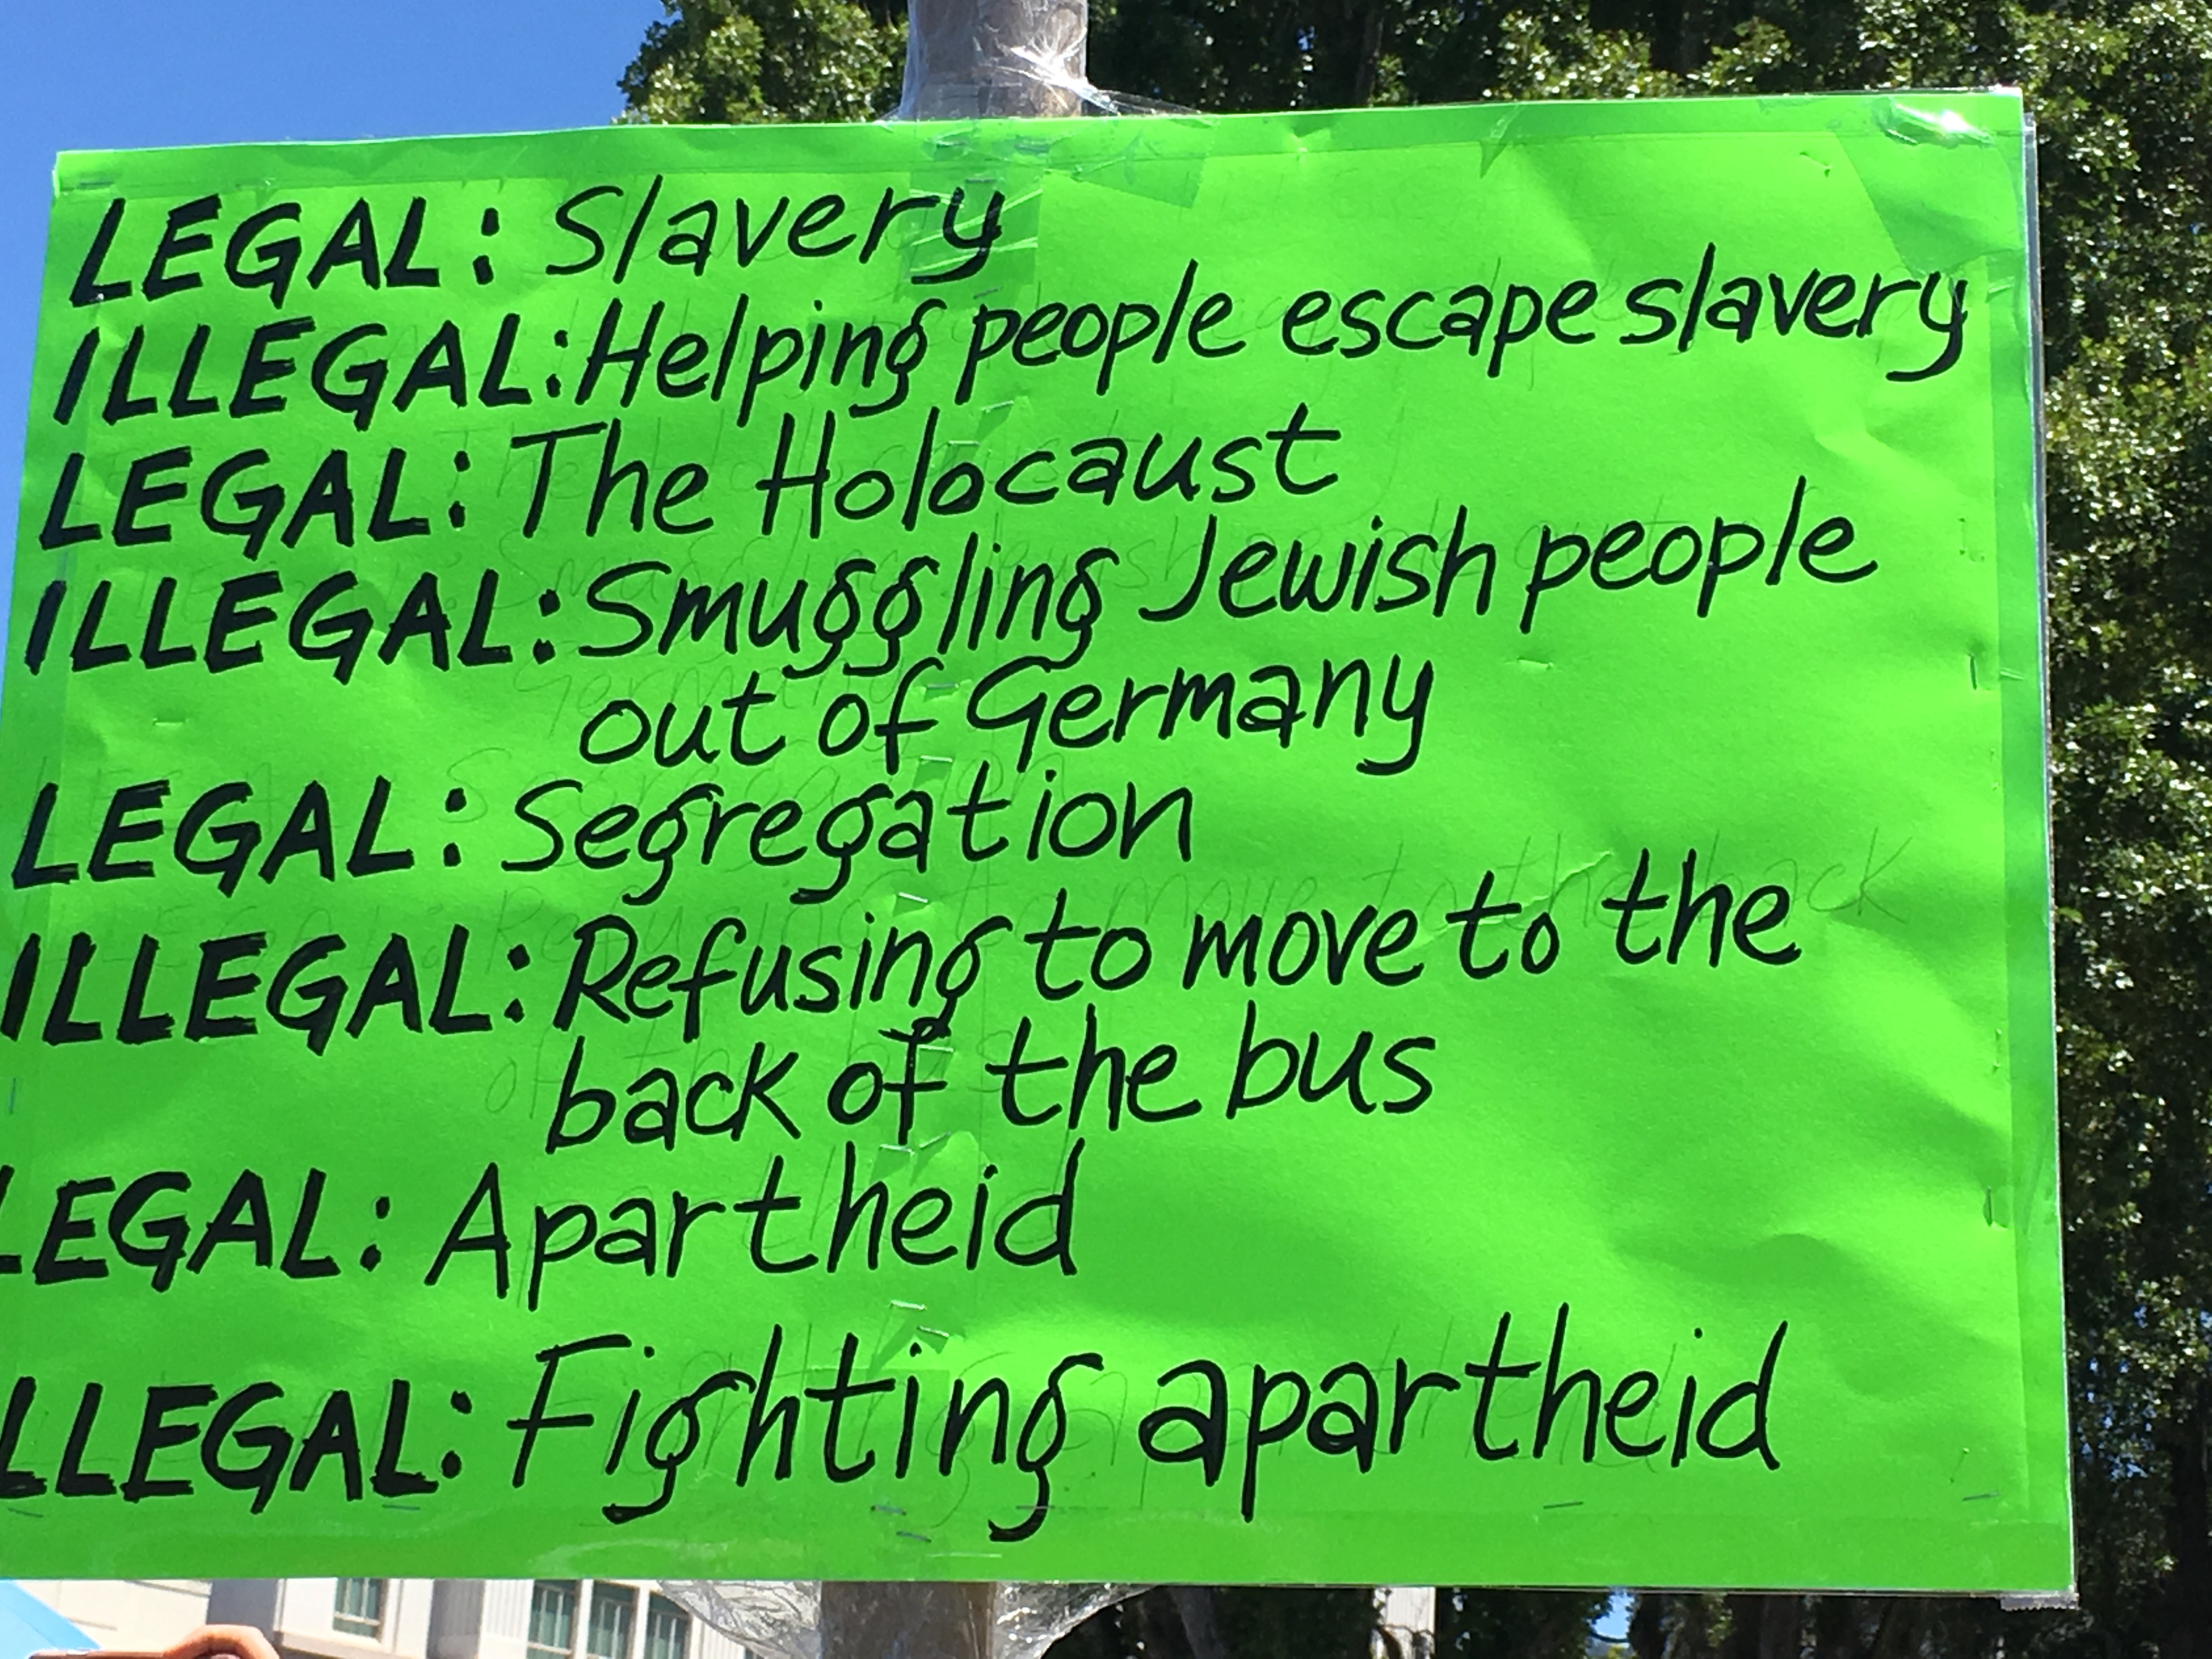 LEGAL: Slavery
ILLEGAL: Helping people escape slavery
LEGAL: The Holocaust
ILLEGAL: Smuggling Jewish people
out of Germany
LEGAL: Segregation
ILLEGAL: Refusing to move to the
back of the bus
LEGAL: Apartheid
ILLEGAL: Fighting apartheid